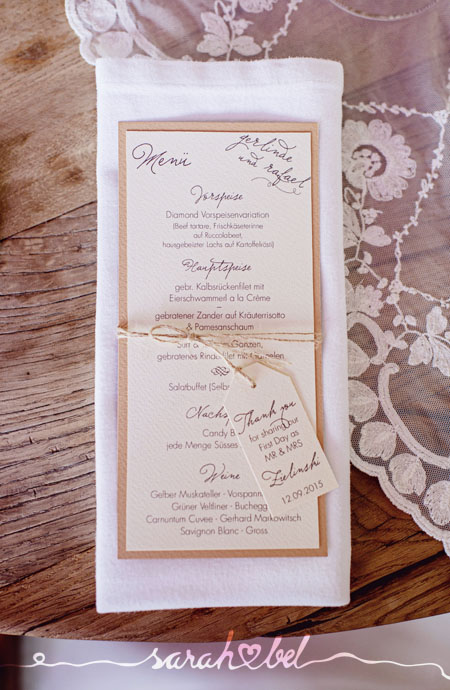 Menü
gerlinde
und rafael
Vorspeise
Diamond Vorspeisenvariation
(Beef tartare, Frischkäseterinne
auf Ruccolabeet,
hausgebeizter Lachs auf Kartoffelkäsi)
Hauptspeise
gebr. Kalbsrückenfilet mit
Eierschwammerl a la Crème
–
gebratener Zander auf Kräuterrisotto
& Pamesanschaum
Ganzen,
gebratenes
Salatbuffet (Selbst
Nachsp
Candy B
jede Menge Süsses
Weine
Gelber Muskateller - Vorspann
Grüner Veltliner - Buchegg
Carnuntum Cuvee - Gerhard Markowitsch
Savignon Blanc - Gross
Thank you
for sharing our
First Day as
MR & MRS
Zielinski
12.09.2015
sarah bel